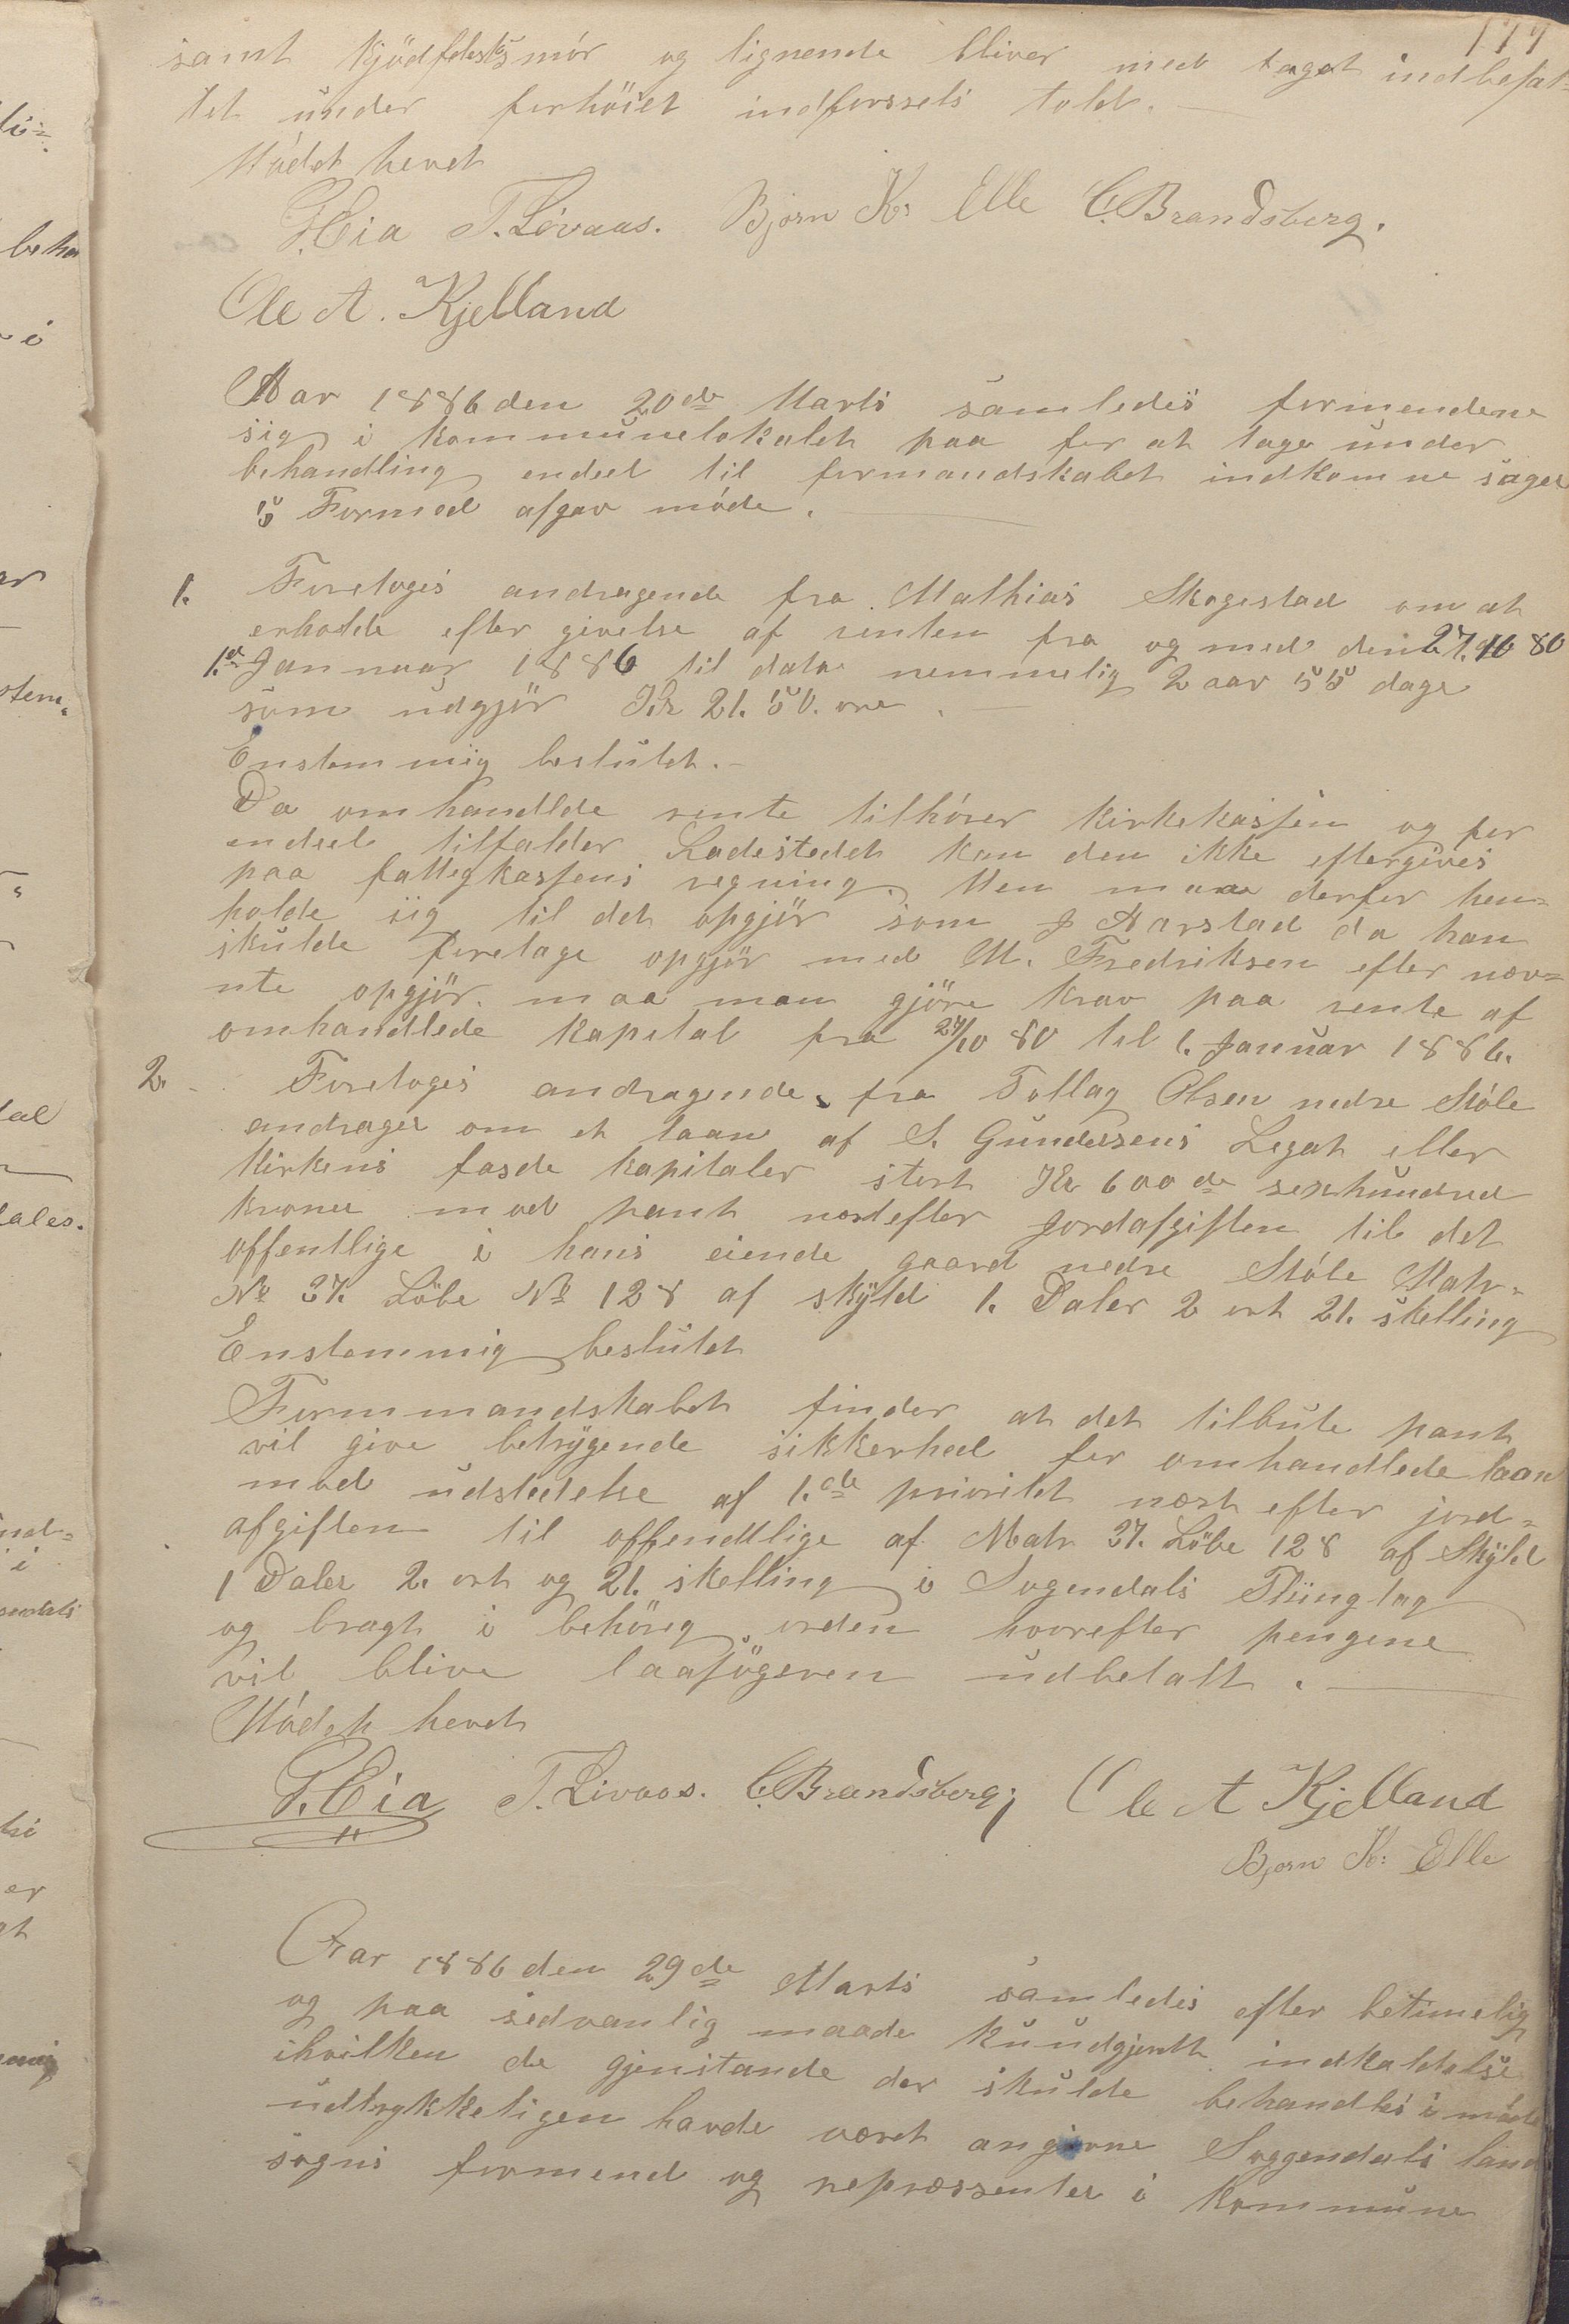 177
samt kjødflesk smør og lignende bliver med taget indbefat-
tet under forhöiet indførsels told.
Mødet hevet
T. Eia T. Lövaas. Bjørn K: Elle C. Brandsberg.
Ole A. Kjelland
Aar 1886 den 20de Marts samledes formendene
sig i kommunelokalet paa for at tage under
behandling endeel til formandskabet indkomne sager
5 Formed afgav møde.
1. Foretoges andragende fra Mathias Skogestad om at
erholde efter givelse af renten fra og med den 27.10 80
1.st Januaar 1886 til dato nemmelig 2 aar 55 dage
som udgjör Kr 21.50. øre.
Enstemmig beslutet.
Da omhandlde rente tilhører kirkekassen og for
endeel tilfalder Ladestedet kan den ikke eftergives
paa fattigkassens regning. Men maa derfor hen-
holde sig til det opgjör som J Aarstad da han
skulde foretage opgjör med M. Fredriksen efter næv-
nte opgjör. maa man gjöre krav paa rente af
omhandlede kapital fra 27/10 80 til 1. Januar 1886.
2. Foretoges andragende fra Tollag Olsen nedre Støle
andrager om et laan af S. Gundersens Legat eller
kirkens fasde kapitaler stort Kr 600 de sexhundred
kroner mod pant næstefter Jordafgiften til det
offentlige i hans eiende gaard nedre Støle Matr.
No 37. Löbe No 128 af skÿld 1. Daler 2 ort 21. skelling
Enstemmig beslutet
Formmandskabet finder at det tilbute pant
vil give betrÿgende sikkerhed for omhandlede laan
mod udstedelse af 1.ste prioritet næst efter jord-
afgiften til offendtlige af Matr 37. Löbe 128 af Skÿld
1 Daler 2. ort og 21. skelling i Sogendals Thinglag
og bragt i behörig orden hvorefter pengene
vil blive laasögeren udbetalt.
Mødet hevet
T. Eia T. Livaas. C. Brandsberg; Ole A Kjelland
Bjørn K: Elle
Aar 1886 den 29de Marts samledes efter betimelig
og paa sedvanlig maade kundgjordt indkaldelse
ihvilken de gjenstande der skulde behandles i møde
udtrykkeligen havde været angivne Soggendals land
sogns formend og repræssenter i Kommune